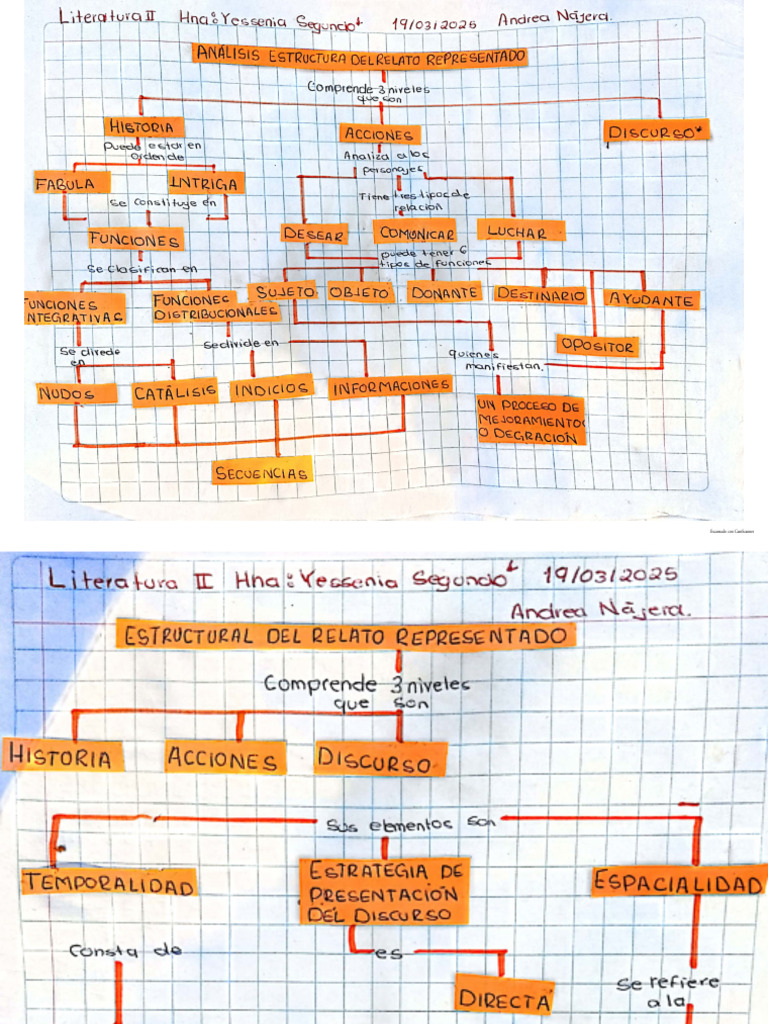 Literatura II Hna: Yessenia Segundo L 19/03/2025 Andrea Nájera.
ANÁLISIS ESTRUCTURA DEL RELATO REPRESENTADO
Comprende 3 niveles
que son
HISTORIA
ACCIONES
DISCURSO*
Puede estar en
orden de
Analiza a los
personajes
FABULA
INTRIGA
se constituye en
Tiene tres tipos de
relacion
FUNCIONES
DESEAR
COMUNICAR
LUCHAR
puede tener 6
tipos de funciones
Se clasifican en
UNCIONES
NTEGRATIVAS
FUNCIONES
DISTRIBUCIONALES
SUJETO
OBJETO
DONANTE
DESTINARIO
AYUDANTE
OPOSITOR
Se divede
en
Se divide en
quienes
manifiestan.
NUDOS
CATÁLISIS
INDICIOS
INFORMACIONES
UN PROCESO DE
MEJORAMIENTO
O DEGRACIÓN
SECUENCIAS
Escaneado con CamScanner
Literatura II Hna: Yessenia Segundo L 19/03/2025
Andrea Nájera.
ESTRUCTURAL DEL RELATO REPRESENTADO
Comprende 3 niveles
que son
HISTORIA
ACCIONES
DISCURSO
Sus elmentos son
TEMPORALIDAD
ESTRATEGIA DE
PRESENTACIÓN
DEL DISCURSO
ESPACIALIDAD
Consta de
es
DIRECTA
Se refiere
a la